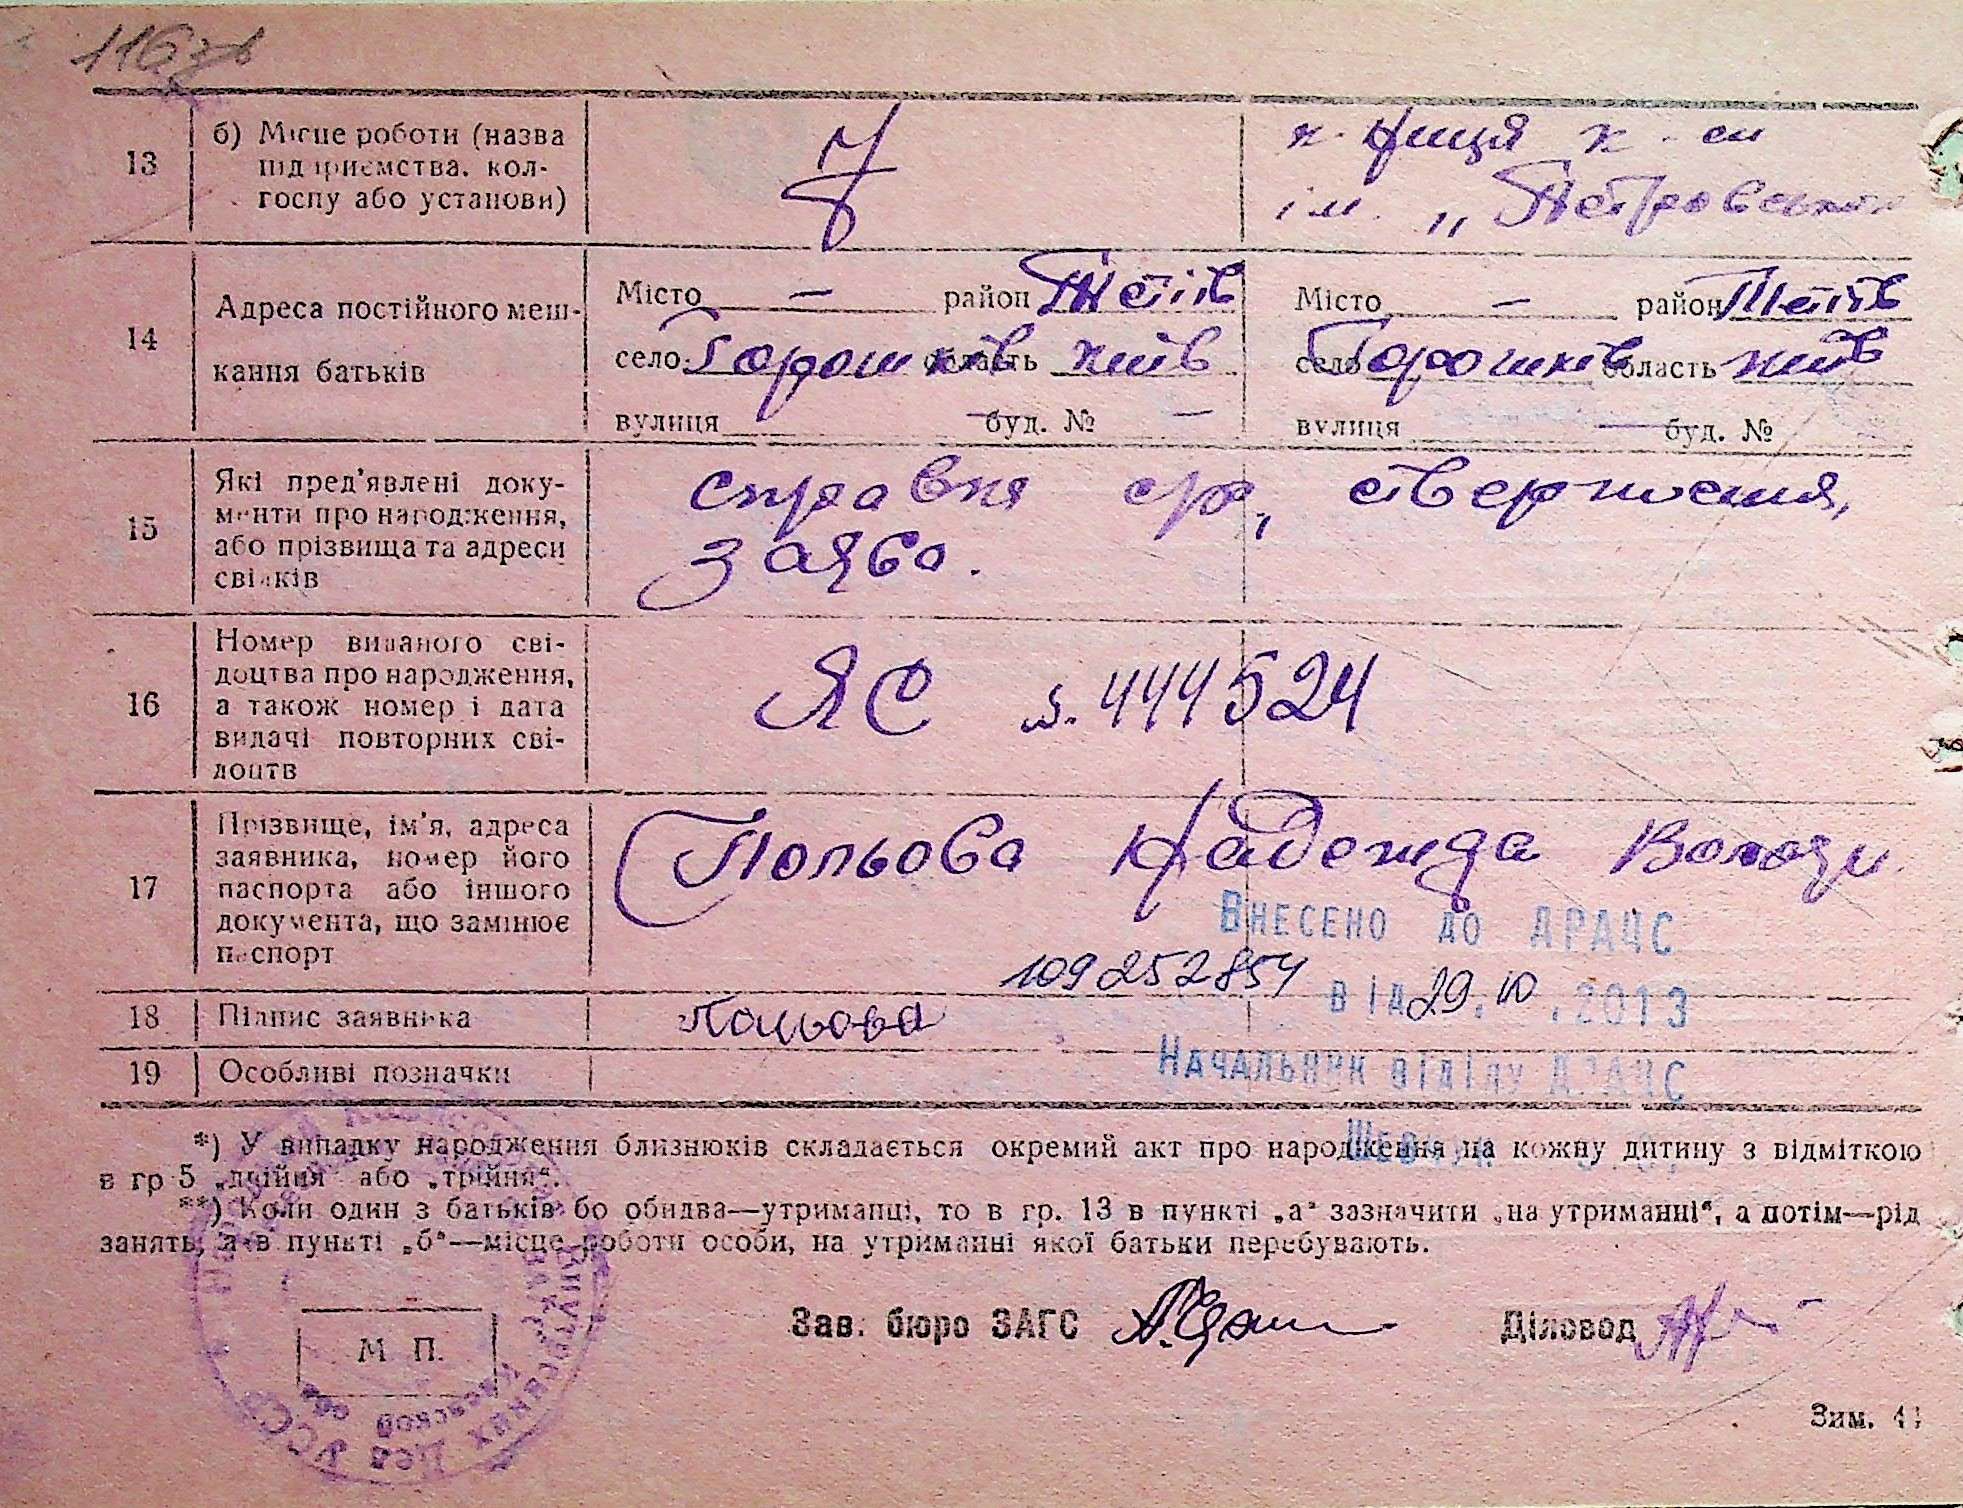 116зв
13
б) Місце роботи (назва
підприємства, кол-
госпу або установи)
к-ниця к-сп
ім. „Петровського
14
Адреса постійного меш-
кання батьків
Місто — район Тетіїв
село Горошків область Київ
вулиця — буд. № —
Місто — район Тетіїв
село Горошків область Київ
вулиця — буд. №
15
Які пред'явлені доку-
менти про народження,
або прізвища та адреси
свідків
справка с/р, ствержження,
заява.
16
Номер виданого сві-
доцтва про народження,
а також номер і дата
видачі повторних сві-
доцтв
ЯС №. 444524
17
Прізвище, ім'я, адреса
заявника, номер його
паспорта або іншого
документа, що замінює
паспорт
Польова Надежда Володи
109252854
Внесено до ДРАЦС
від 29.10.2013
Начальник відділу ДРАЦС
18
Підпис заявника
Польова
19
Особливі позначки
*) У випадку народження близнюків складається окремий акт про народження на кожну дитину з відміткою
в гр 5 „двійня" або „трійня".
**) Коли один з батьків бо обидва—утриманці, то в гр. 13 в пункті „а" зазначити „на утриманні", а потім—рід
занять, а в пункті „б"—місце роботи особи, на утриманні якої батьки перебувають.
М. П.
Зав. бюро ЗАГС
Діловод
Зим.